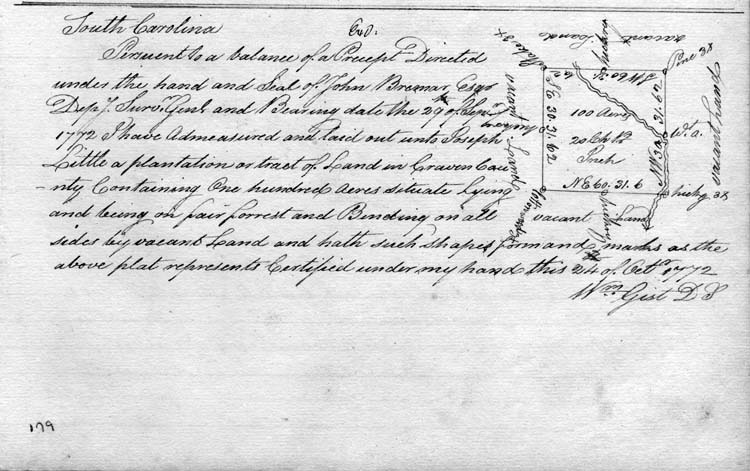 South Carolina
Persuent to a balance of a Precept Directed
under the hand and Seal of John Bremar Esqr
Depy. Survr. Genl. and Bearing date the 29th of Sepr.
1772 I have Admeasured and laid out unto Joseph
Little a plantation or tract of Land in Craven Cou
-nty Containing One hundred Acres situate lying
and being on fair forrest and Binding on all
sides by vacant Land and hath such shapes form and marks as the
above plat represents Certified under my hand this 24th of Octbr 1772
Wm Gist D S
Stake 3X
vacant
Lands
Pine 3X
vacant Land
vacant Land
100 Acres
20 Chs pr
Inch
NE 30 31.62
NW 30 31.62
NE 60 31.6
W.a.
hickry 3X
vacant
Land
179